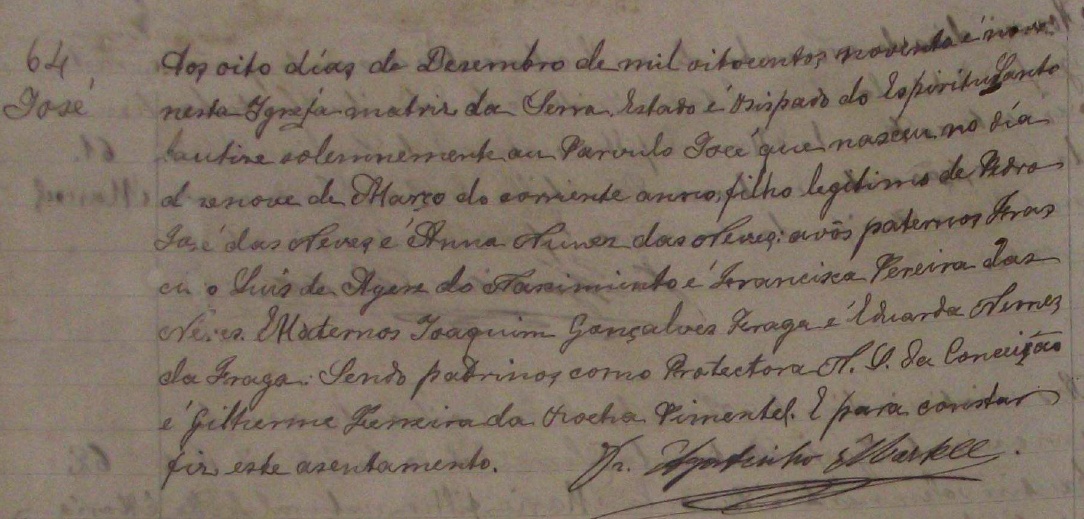 64
José
Aos oito dias de Desembro de mil oitocentos noventa é nove
nesta Igreja matriz da Serra. Estado é Bispado do Espiritu Santo
bautize solemnemente au Parvulo José que nasceu no dia
desenove de Março do corriente anno, filho legitimo de Pedro
José das Neves é Anna Nunes das Neves: avôs paternos Fras
cisco Luis de do Nascimiento é Francisca Pereira das
Neves. E Maternos Joaquim Gonçalves Fraga é Eduarda Nunes
da Fraga: Sendo padrinos como Protectora N. S. da Conceição
é Gilherme Ferreira da Rocha Pimentel. E para constar
fiz este asentamento. Fr. Agostinho